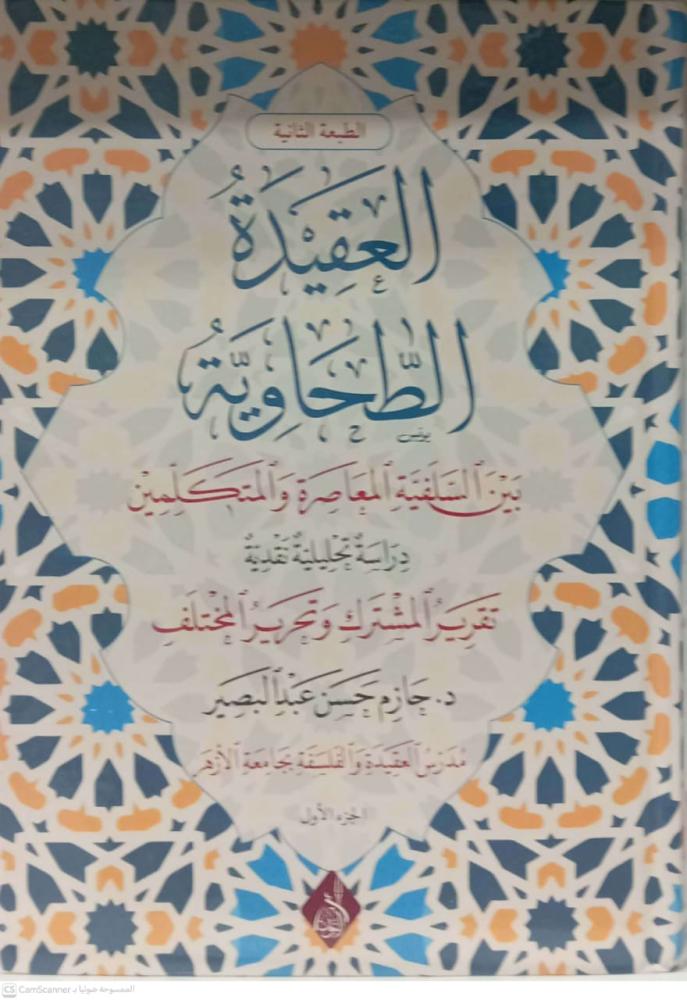 الطبعة الثانية
العَقِيْدَةُ
الطَّحَاوِيَّةُ
يونس
بَيْنَ السَّلَفِيَّةِ المُعَاصِرَةِ وَالمُتَكَلِّمِيْنَ
دِرَاسَةٌ تَحْلِيْلِيَّةٌ نَقْدِيَّةٌ
تَقْرِيْرُ المُشْتَرَكِ وَتَحْرِيْرُ المُخْتَلَفِ
د. حَازِم حَسَن عَبْدِ البَصِيْر
مُدَرِّسُ العَقِيْدَةِ وَالفَلْسَفَةِ بِجَامِعَةِ الأَزْهَر
الجزء الأول
CS CamScanner الممسوحة ضوئيا بـ